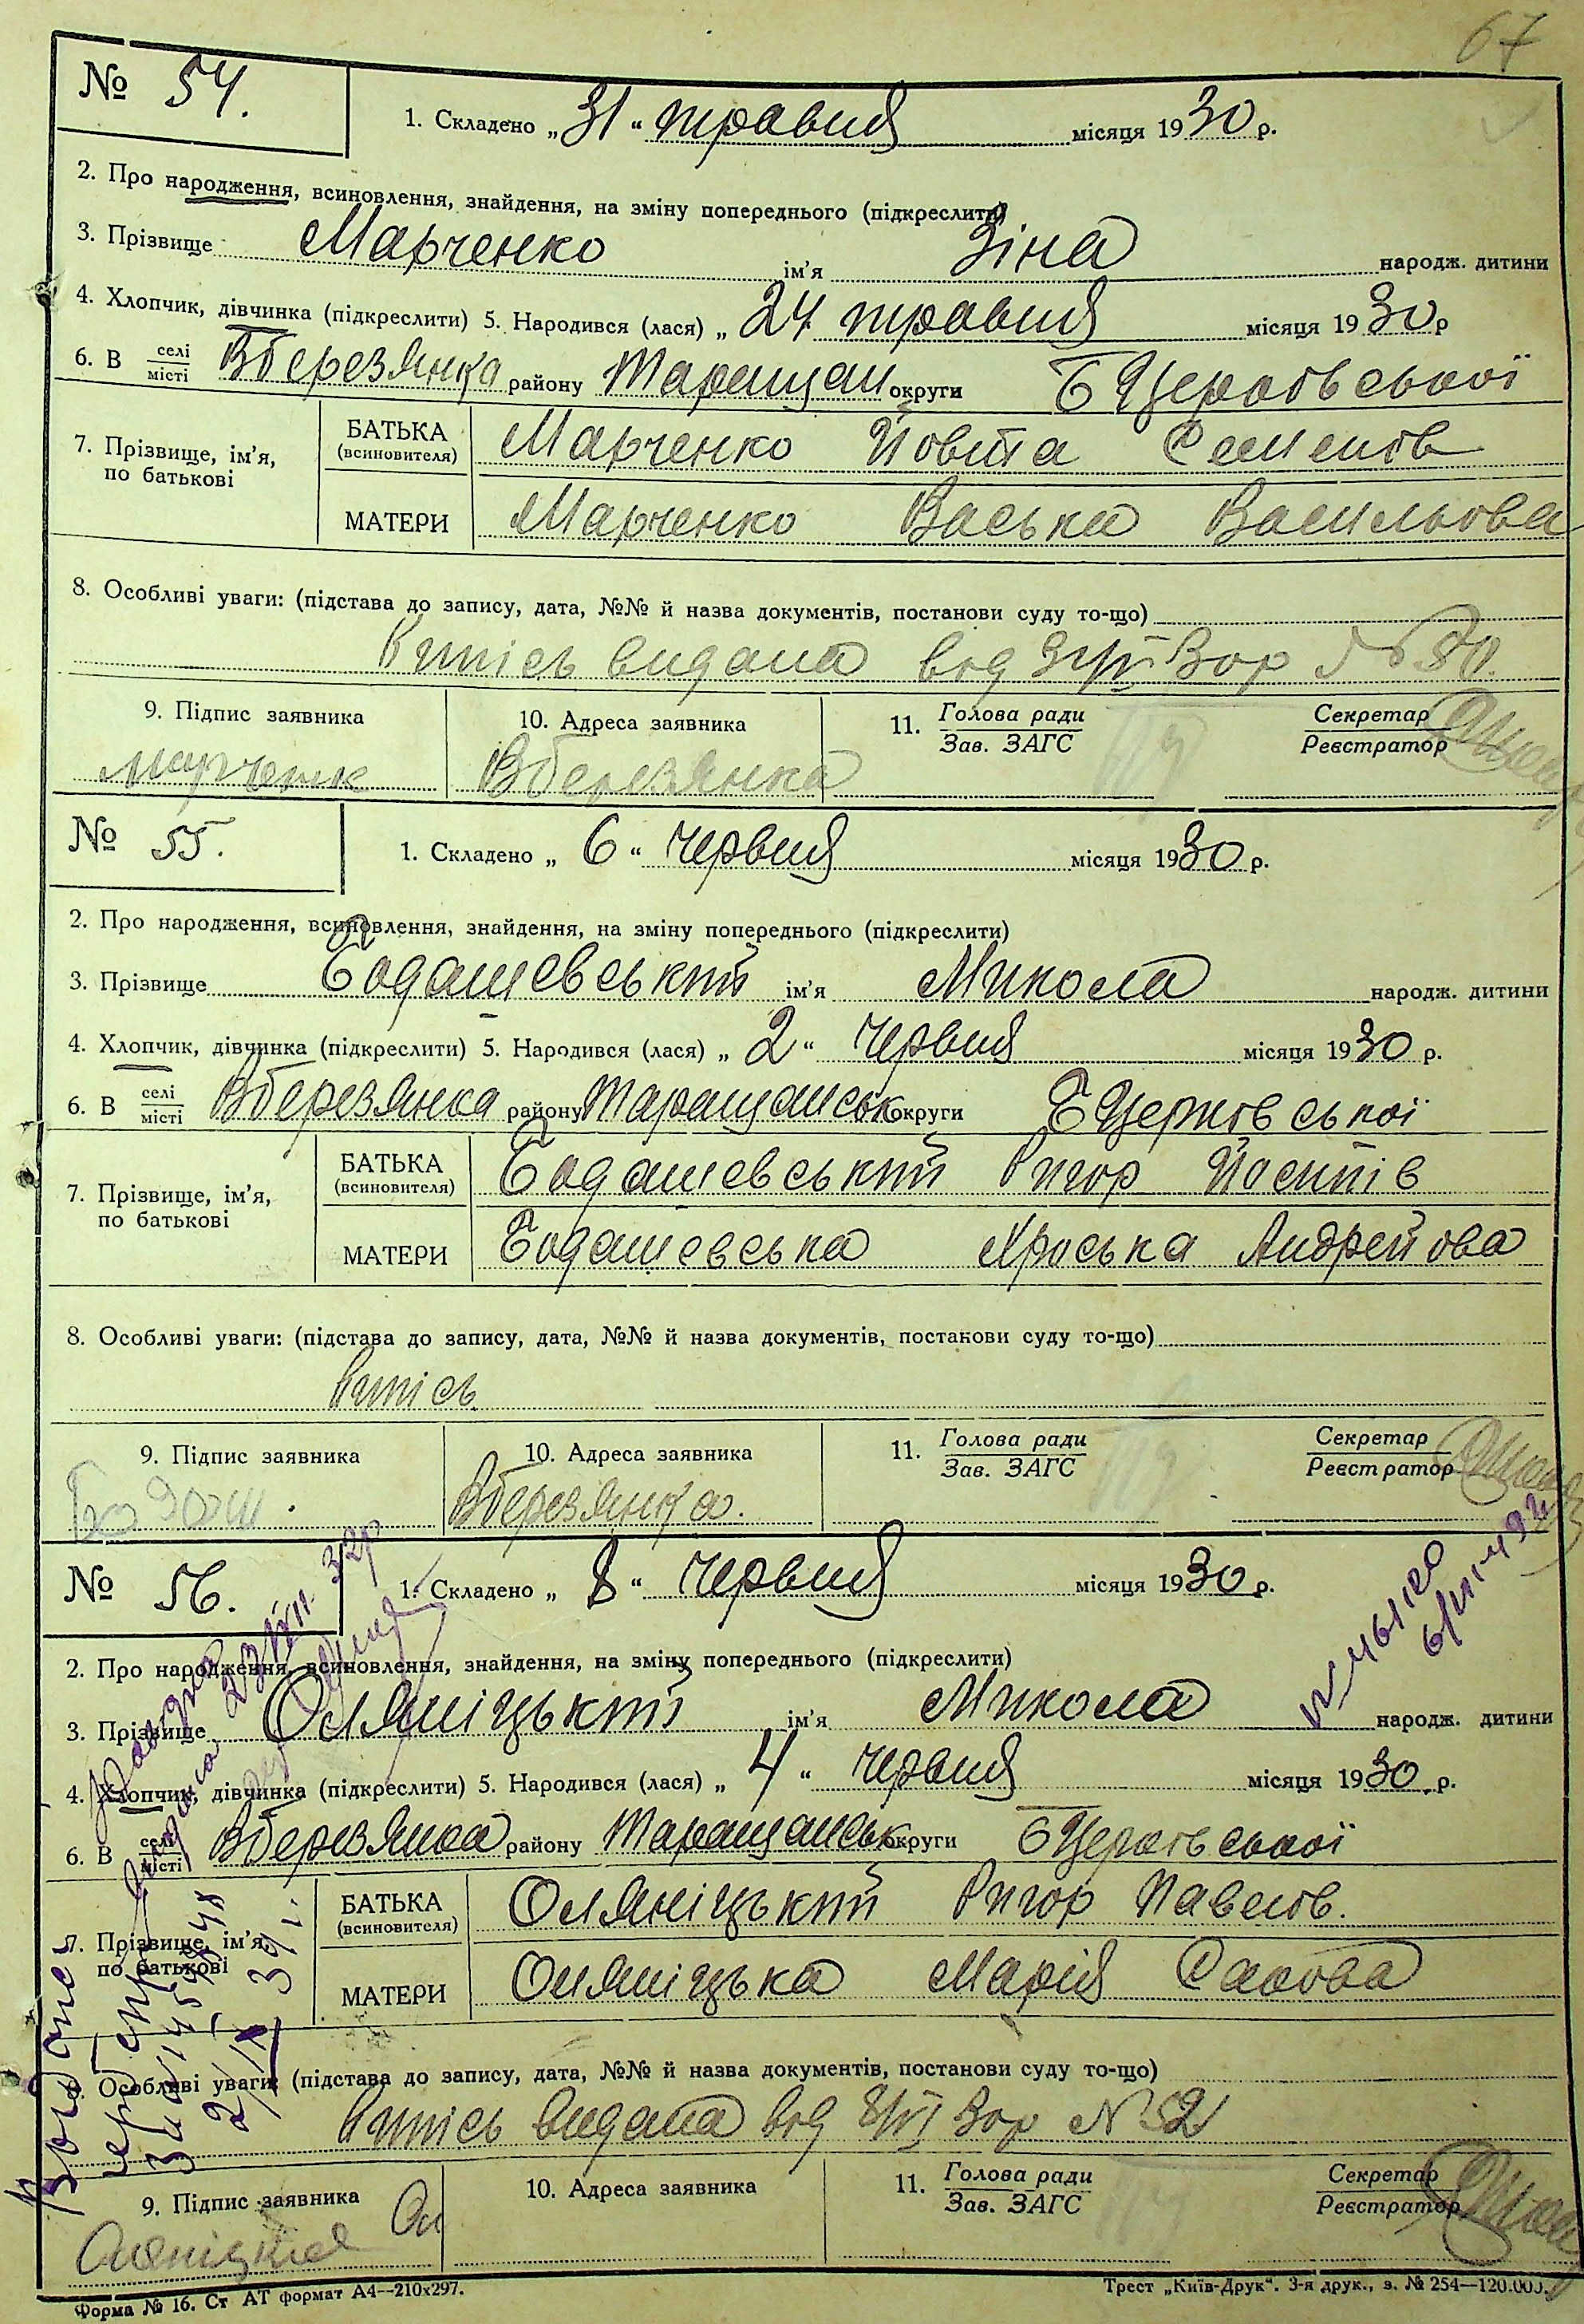 67
№ 54.
1. Складено „31“ травня місяця 1930 р.
2. Про народження, всиновлення, знайдення, на зміну попереднього (підкреслити)
3. Прізвище Марченко ім'я Зіна народж. дитини
4. Хлопчик, дівчинка (підкреслити) 5. Народився (лася) „24 травня місяця 1930 р
6. В селі місті ВБерезянка району Таращан округи БЦерковської
7. Прізвище, ім'я, по батькові
БАТЬКА (всиновителя) Марченко Йовта Семенов
МАТЕРИ Марченко Васька Васильова
8. Особливі уваги: (підстава до запису, дата, №№ й назва документів, постанови суду то-що)
Випісь видана від 3/VI 30р № 80.
9. Підпис заявника
10. Адреса заявника
11. Голова ради Зав. ЗАГС
Секретар Реєстратор
ВБерезянка
№ 55.
1. Складено „6“ червня місяця 1930 р.
2. Про народження, всиновлення, знайдення, на зміну попереднього (підкреслити)
3. Прізвище Бодашевський ім'я Микола народж. дитини
4. Хлопчик, дівчинка (підкреслити) 5. Народився (лася) „2“ червня місяця 1930 р.
6. В селі місті ВБерезянка району Таращанськ округи БЦерковської
7. Прізвище, ім'я, по батькові
БАТЬКА (всиновителя) Бодашевський Ригор Йосипів
МАТЕРИ Бодашевська Хроська Андрейова
8. Особливі уваги: (підстава до запису, дата, №№ й назва документів, постанови суду то-що)
Випісь
9. Підпис заявника
10. Адреса заявника
11. Голова ради Зав. ЗАГС
Секретар Реєстратор
Бодаш. ВБерезянка.
№ 56.
1. Складено „8“ червня місяця 1930 р.
2. Про народження, всиновлення, знайдення, на зміну попереднього (підкреслити)
3. Прізвище Оляніцький ім'я Микола народж. дитини
4. Хлопчик, дівчинка (підкреслити) 5. Народився (лася) „4“ червня місяця 1930 р.
6. В селі місті ВБерезянка району Таращанськ округи БЦерковської
7. Прізвище, ім'я, по батькові
БАТЬКА (всиновителя) Оляніцький Ригор Павлов.
МАТЕРИ Оляніцька Марія Сакова
8. Особливі уваги: (підстава до запису, дата, №№ й назва документів, постанови суду то-що)
Випісь видана від 8/VI 30р № 2
9. Підпис заявника
10. Адреса заявника
11. Голова ради Зав. ЗАГС
Секретар Реєстратор
Форма № 16. Ст АТ формат А4--210х297.
Трест „Київ-Друк“. 3-я друк., з. № 254—120.000.